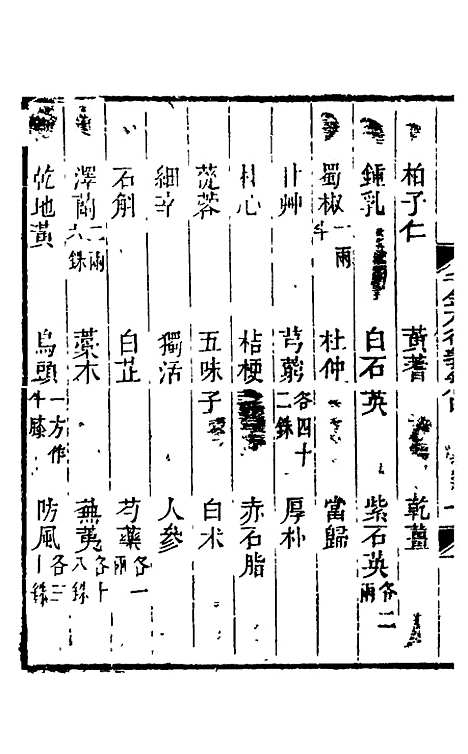 柏子仁 黃耆 乾薑
鍾乳 白石英 紫石英各二兩
蜀椒一兩半 杜仲 當歸
甘艸 芎藭各四十二銖 厚朴
桂心 桔梗 赤石脂
蓯蓉 五味子 白朮
細辛 獨活 人參
石斛 白芷 芍藥各一兩
澤蘭二兩六銖 藁本 蕪荑各十八銖
乾地黃 烏頭一方作牛膝 防風各三十銖
千金方衍義卷